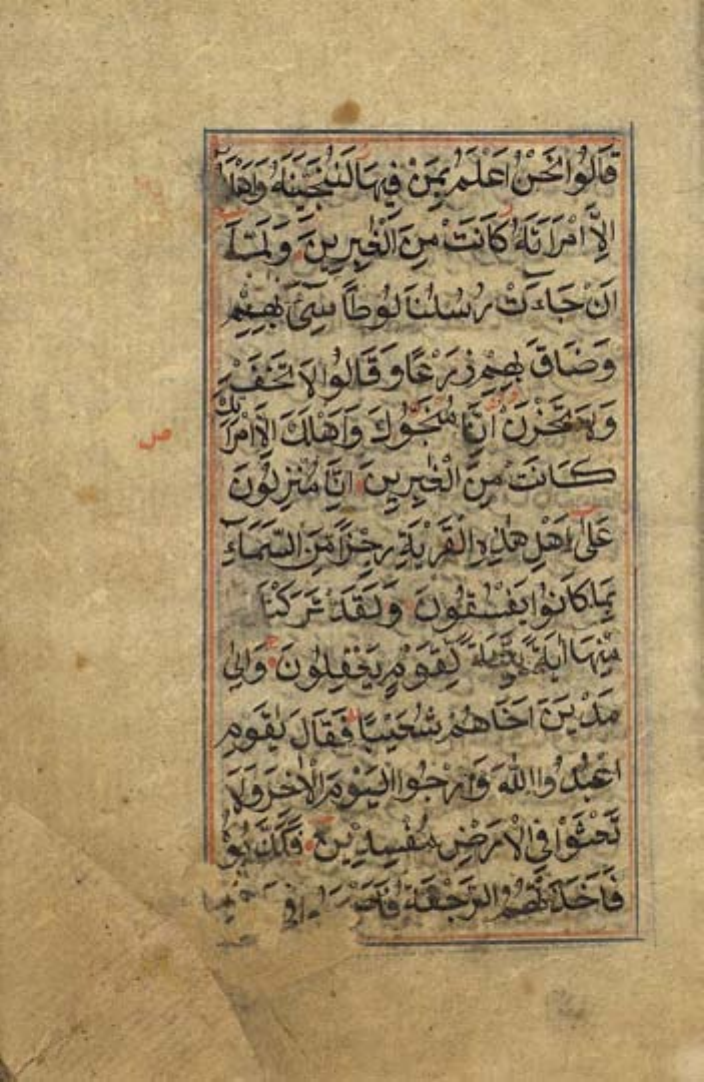 قَالُوا نَحْنُ اَعْلَمُ بِمَنْ فِيهَا لَنُنَجِّيَنَّهُ وَاَهْلَهُ
اِلَّا امْرَاَتَهُ كَانَتْ مِنَ الْغٰبِرِينَ وَلَمَّا
اَنْ جَاءَتْ رُسُلُنَا لُوطًا سِیْٓءَ بِهِمْ
وَضَاقَ بِهِمْ ذَرْعًا وَقَالُوا لَا تَخَفْ
وَلَا تَحْزَنْ اِنَّا مُنَجُّوكَ وَاَهْلَكَ اِلَّا امْرَاَتَكَ
ص
كَانَتْ مِنَ الْغٰبِرِينَ اِنَّا مُنْزِلُونَ
عَلٰى اَهْلِ هٰذِهِ الْقَرْيَةِ رِجْزًا مِنَ السَّمَاءِ
بِمَا كَانُوا يَفْسُقُونَ وَلَقَدْ تَرَكْنَا
مِنْهَا اٰيَةً بَيِّنَةً لِقَوْمٍ يَعْقِلُونَ وَاِلٰى
مَدْيَنَ اَخَاهُمْ شُعَيْبًا فَقَالَ يٰقَوْمِ
اعْبُدُوا اللّٰهَ وَارْجُوا الْيَوْمَ الْاٰخِرَ وَلَا
تَعْثَوْا فِى الْاَرْضِ مُفْسِدِينَ فَكَذَّبُوهُ
فَاَخَذَتْهُمُ الرَّجْفَةُ فَاَصْبَحُوا فِى